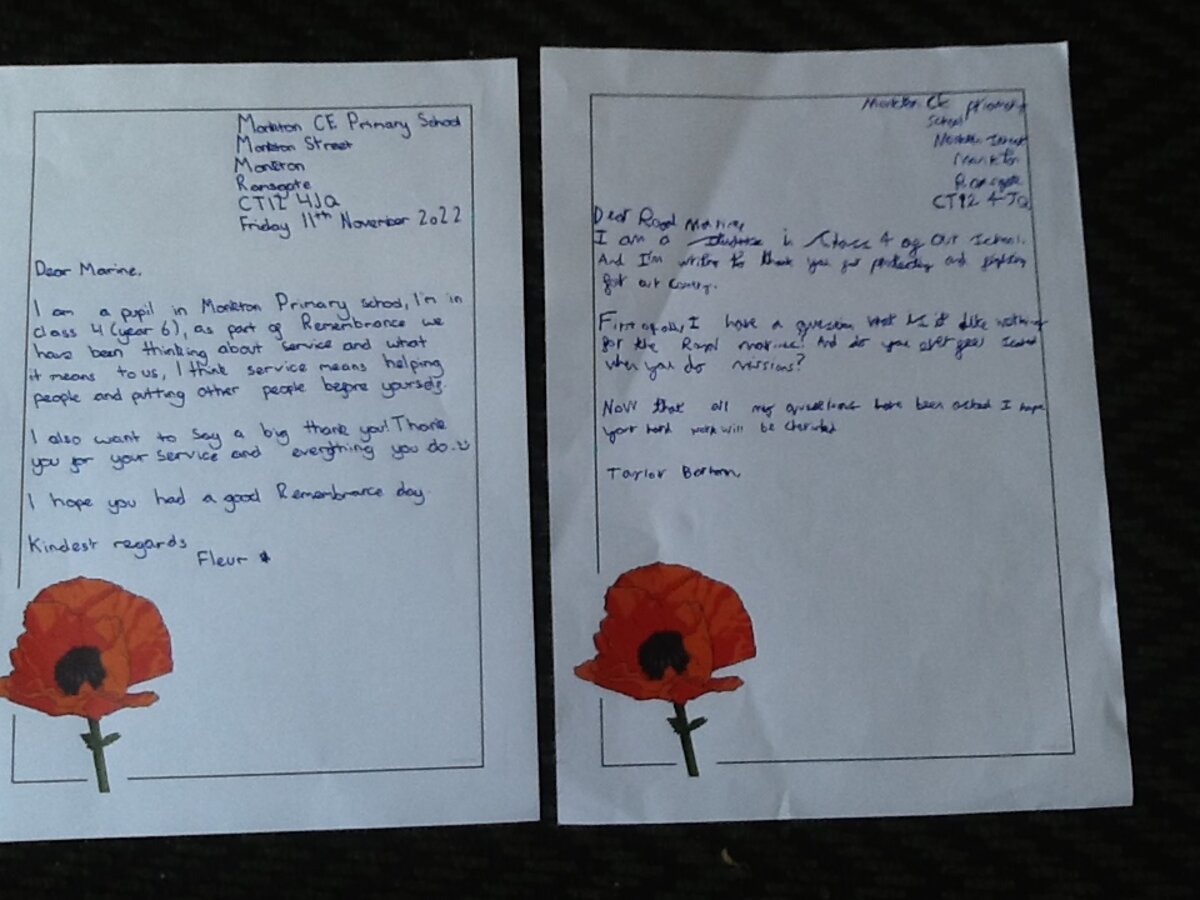 Monkton CE Primary School
Monkton Street
Monkton
Ramsgate
CT12 4JQ
Friday 11th November 2022
Dear Marine,
I am a pupil in Monkton Primary school, I'm in
class 4 (year 6), as part of Remembrance we
have been thinking about service and what
it means to us, I think service means helping
people and putting other people before yourself.
I also want to say a big thank you! Thank
you for your service and everything you do.
I hope you had a good Remembrance day.
Kindest regards
Fleur
Monkton CE primary
School
Monkton Street
Monkton
Ramsgate
CT12 4JQ
Dear Royal Marine,
I am a in Class 4 of our school.
And I'm writing to thank you for protecting and fighting
for our
First of all, I have a question what is it like
for the Royal marines? And do you ever get scared
when you do missions?
Now that all my questions have been asked I hope
your hard work will be
Taylor